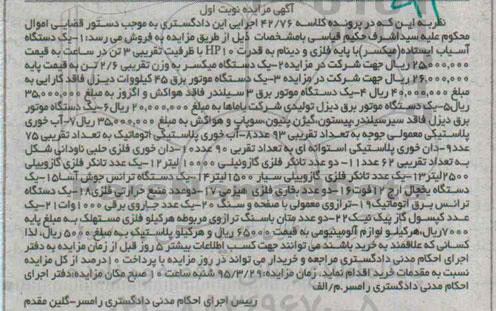 آگهی مزایده نوبت اول
نظربه این که در پرونده کلاسه ۴۲/۷۶ اجرایی این دادگستری به موجب دستور قضایی اموال
محکوم علیه سیداشرف حکیم قیاسی بامشخصات ذیل از طریق مزایده به فروش می رسد:۱-یک دستگاه
آسیاب ایستاده(میکسر)با پایه فلزی و دینام به قدرت HP۱۰ با ظرفیت تقریبی ۳ تن در ساعت به قیمت
۲۵,۰۰۰,۰۰۰ ریال جهت شرکت در مزایده ۲-یک دستگاه میکسر به وزن تقریبی ۲/۶ تن به قیمت پایه
۲۶,۰۰۰,۰۰۰ ریال جهت شرکت در مزایده ۳-یک دستگاه موتور برق ۴۵ کیلووات دیزل فاقد کارایی به
مبلغ ۴۰,۰۰۰,۰۰۰ ریال ۴-یک دستگاه موتور برق ۳ سیلندر فاقد هواکش و اگزوز به مبلغ ۳۵,۰۰۰,۰۰۰
ریال۵-یک دستگاه موتور برق دیزل تولیدی شرکت یاماها به مبلغ ۲۰,۰۰۰,۰۰۰ ریال۶-یک دستگاه موتور
برق دیزل فاقد سرسیلندر,پیستون,گژن پنیون,سوپاپ و هواکش به مبلغ ۳۵,۰۰۰,۰۰۰ ریال۷-آب خوری
پلاستیکی معمولی جوجه به تعداد تقریبی ۹۳ عدد۸-آب خوری پلاستیکی اتوماتیک به تعداد تقریبی ۷۵
عدد۹-دان خوری پلاستیکی استوانه ای به تعداد تقریبی ۹۰ عدد۱۰-دان خوری فلزی حلبی ناودانی شکل
به تعداد تقریبی ۶۲ عدد۱۱-دو عدد تانکر فلزی گازوئیلی ۱۰۰۰ لیتر۱۲-یک عدد تانکر فلزی گازوییلی
۲۵۰۰لیتر۱۳-یک عدد تانکر فلزی گازوییلی سیار ۱۵۰۰لیتر۱۴-یک دستگاه ترانس جوش آسا۱۵-یک
دستگاه یخچال ارج ۱۲فوت۱۶-دوعدد بخاری فلزی هیزمی۱۷-دوعدد منبع حرارتی فلزی۱۸-یک دستگاه
ترانس برق اتوماتیک۱۹-ترازوی معمولی با صفحه و سنگ ۲۰-یک عدد جاروی برقی ۱۰۰۰وات۲۱-یک
عدد کپسول گاز پیک نیک۲۲-دو عدد متان باسنگ ترازوی مربوطه هرکیلو فلزی مستهلک به مبلغ پایه
۷۰۰۰ریال،هرکیلو لوازم آلومینیومی به قیمت ۶۵۰۰۰ ریال و هرکیلو پلاستیک به مبلغ ۵۰۰۰ ریال، لذا
کسانی که علاقمند به خرید باشند می توانند جهت کسب اطلاعات بیشتر ۵ روز قبل از زمان مزایده به دفتر
اجرای احکام مدنی دادگستری مراجعه و خریدار می تواند در روز مزایده با پرداخت ۱۰درصد از کل مزایده
نسبت به مقدمات خرید اقدام نماید. زمان مزایده:۹۵/۳/۲۹ شنبه ساعت ۱۰ صبح مکان مزایده:دفتر اجرای
احکام مدنی دادگستری رامسر.م/الف
رییس اجرای احکام مدنی دادگستری رامسر-گلین مقدم